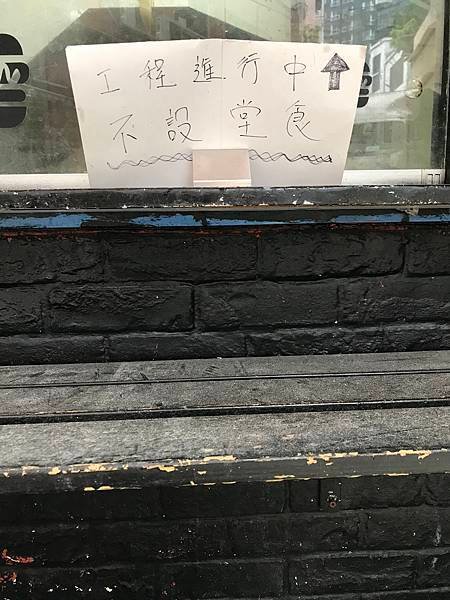 工程進行中
不設堂食